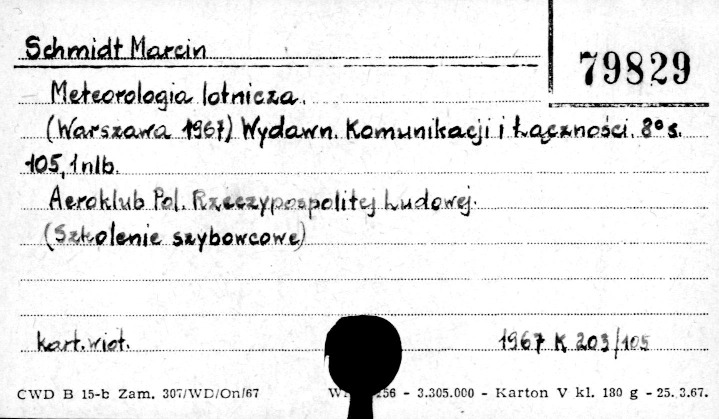 Schmidt Marcin
79829
Meteorologia lotnicza.
(Warszawa 1967) Wydawn. Komunikacji i Łączności. 8° s.
105, 1 nlb.
Aeroklub Pol. Rzeczypospolitej Ludowej.
(Szkolenie szybowcowe)
kart. wiot.
1967 K 203/105
CWD B 15-b Zam. 307/WD/On/67
256 - 3.305.000 - Karton V kl. 180 g - 25.3.67.